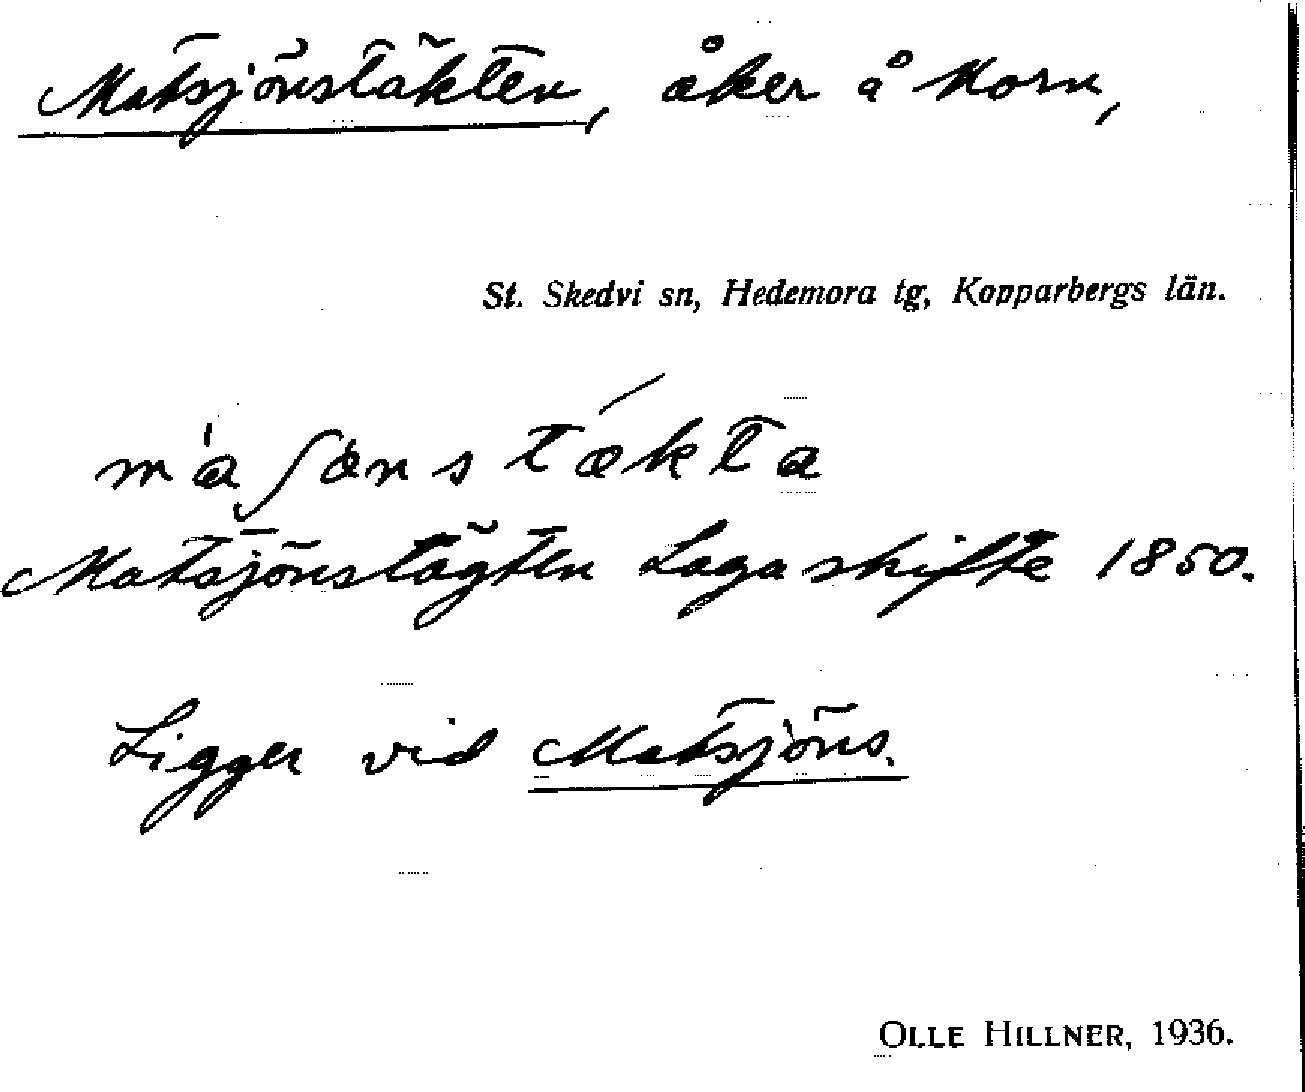 Matsjönstäkten, åker å Norn,
St. Skedvi sn, Hedemora tg, Kopparbergs län.
Matsjönstägten Laga skifte 1850.
Ligger vid Matsjöns.
OLLE HILLNER, 1936.